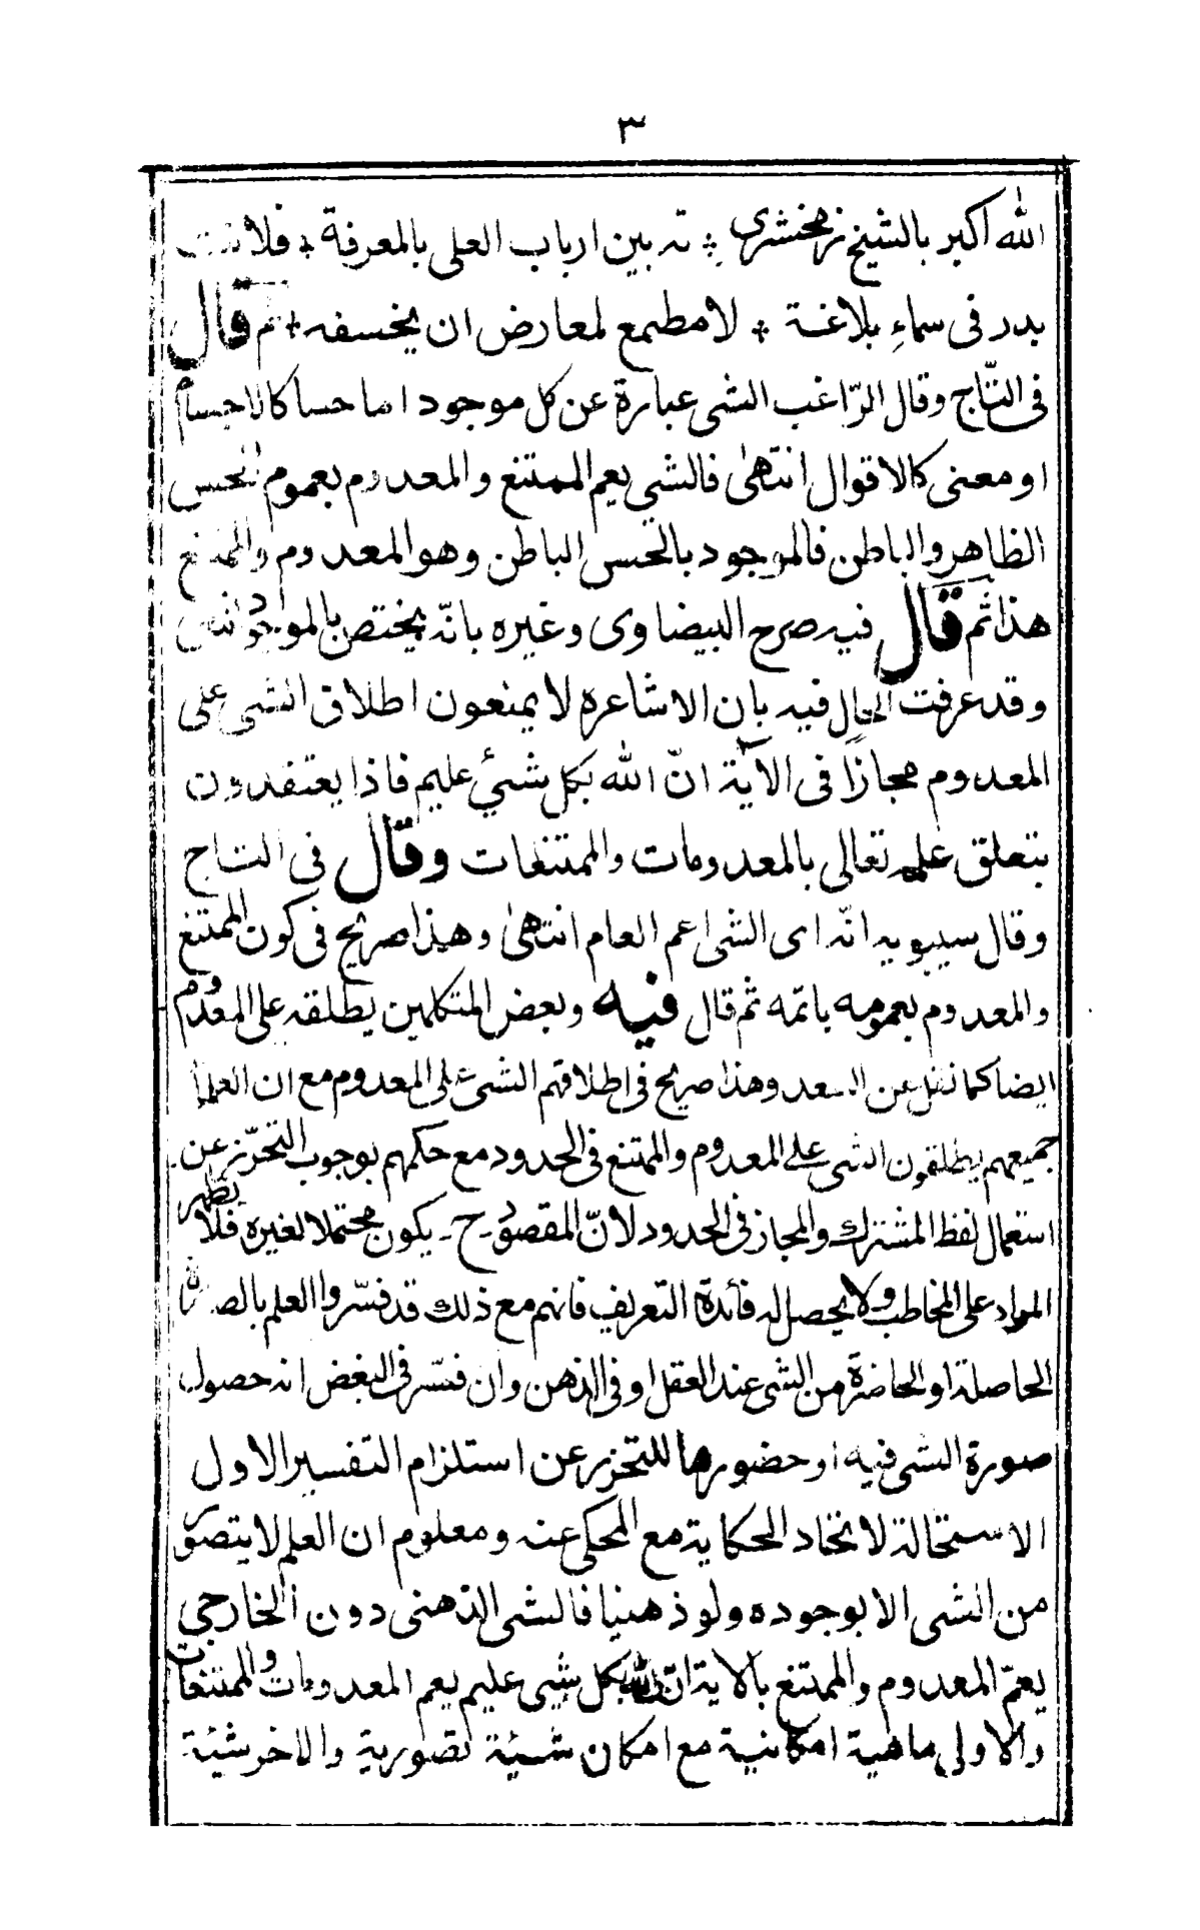 ٣
الله اكبر بالشيخ زمخشرى ؞ تد بين ارباب العلى بالمعرفة ؞ فلا
بدر فى سماء بلاغة ؞ لا مطمع لمعارض ان يخسفه ؞ ثم قال
فى التّاج وقال الرّاغب الشى عبارة عن كل موجود اما حسا كالاجسام
او معنى كالاقوال انتهىٰ فالشي يعم الممتنع والمعدوم بعموم الحس
الظاهر والباطن فالموجود بالحس الباطن وهو المعدوم والممتنع
هذا ثم قال فيه صرح البيضاوى وغيره بانّه يختص بالموجود انتهى
وقد عرفت الحال فيه بان الاشاعرة لا يمنعون اطلاق الشى على
المعدوم مجازًا فى الآية انّ الله بكل شئ عليم فاذا يعتقدون
بتعلق علمه تعالى بالمعدومات والممتنعات وقال فى التاج
وقال سيبويه انّه اى الشى اعم العام انتهىٰ وهذا صريح فى كون الممتنع
والمعدوم بعمومه باتمّه ثم قال فيه وبعض المتكلمين يطلقه على المعدوم
ايضا كما نقل عن السعد وهذا صريح فى اطلاقهم الشى على المعدوم مع ان العلماء
جميعهم يطلقون الشى على المعدوم والممتنع فى الحدود مع حكمهم بوجوب التحرّز عن
استعمال لفظ المشترك والمجاز فى الحدود لانّ المقصود ح ـ يكون محتملا لغيره فلا يظهر
المراد على المخاطب ولا يحصل له فائدة التعريف فانهم مع ذلك قد فسّروا العلم بالصورة
الحاصلة او الحاضرة من الشى عند العقل او فى الذهن وان فسّر فى البعض انه حصول
صورة الشى فيه او حضورها للتحرز عن استلزام التفسير الاول
الاستحالة لاتحاد الحكاية مع المحكى عنه ومعلوم ان العلم لا يتصور
من الشى الا بوجوده ولو ذهنيا فالشى الذهنى دون الخارجي
يعمّ المعدوم والممتنع بالاية انّ الله بكل شيى عليم يعم المعدومات والممتنعات
والاولى ماهية امكانية مع امكان شيئة تصورية والاخر شيئة